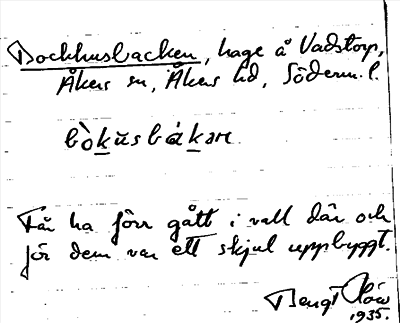 Dockhusbacken, hage å Vadstorp,
Åkers sn, Åkers hd, Söderm. l.
bòkŭsbákαn
Får ha förr gått i vall där och
för dem var ett skjul uppbyggt.
Bengt
1935.